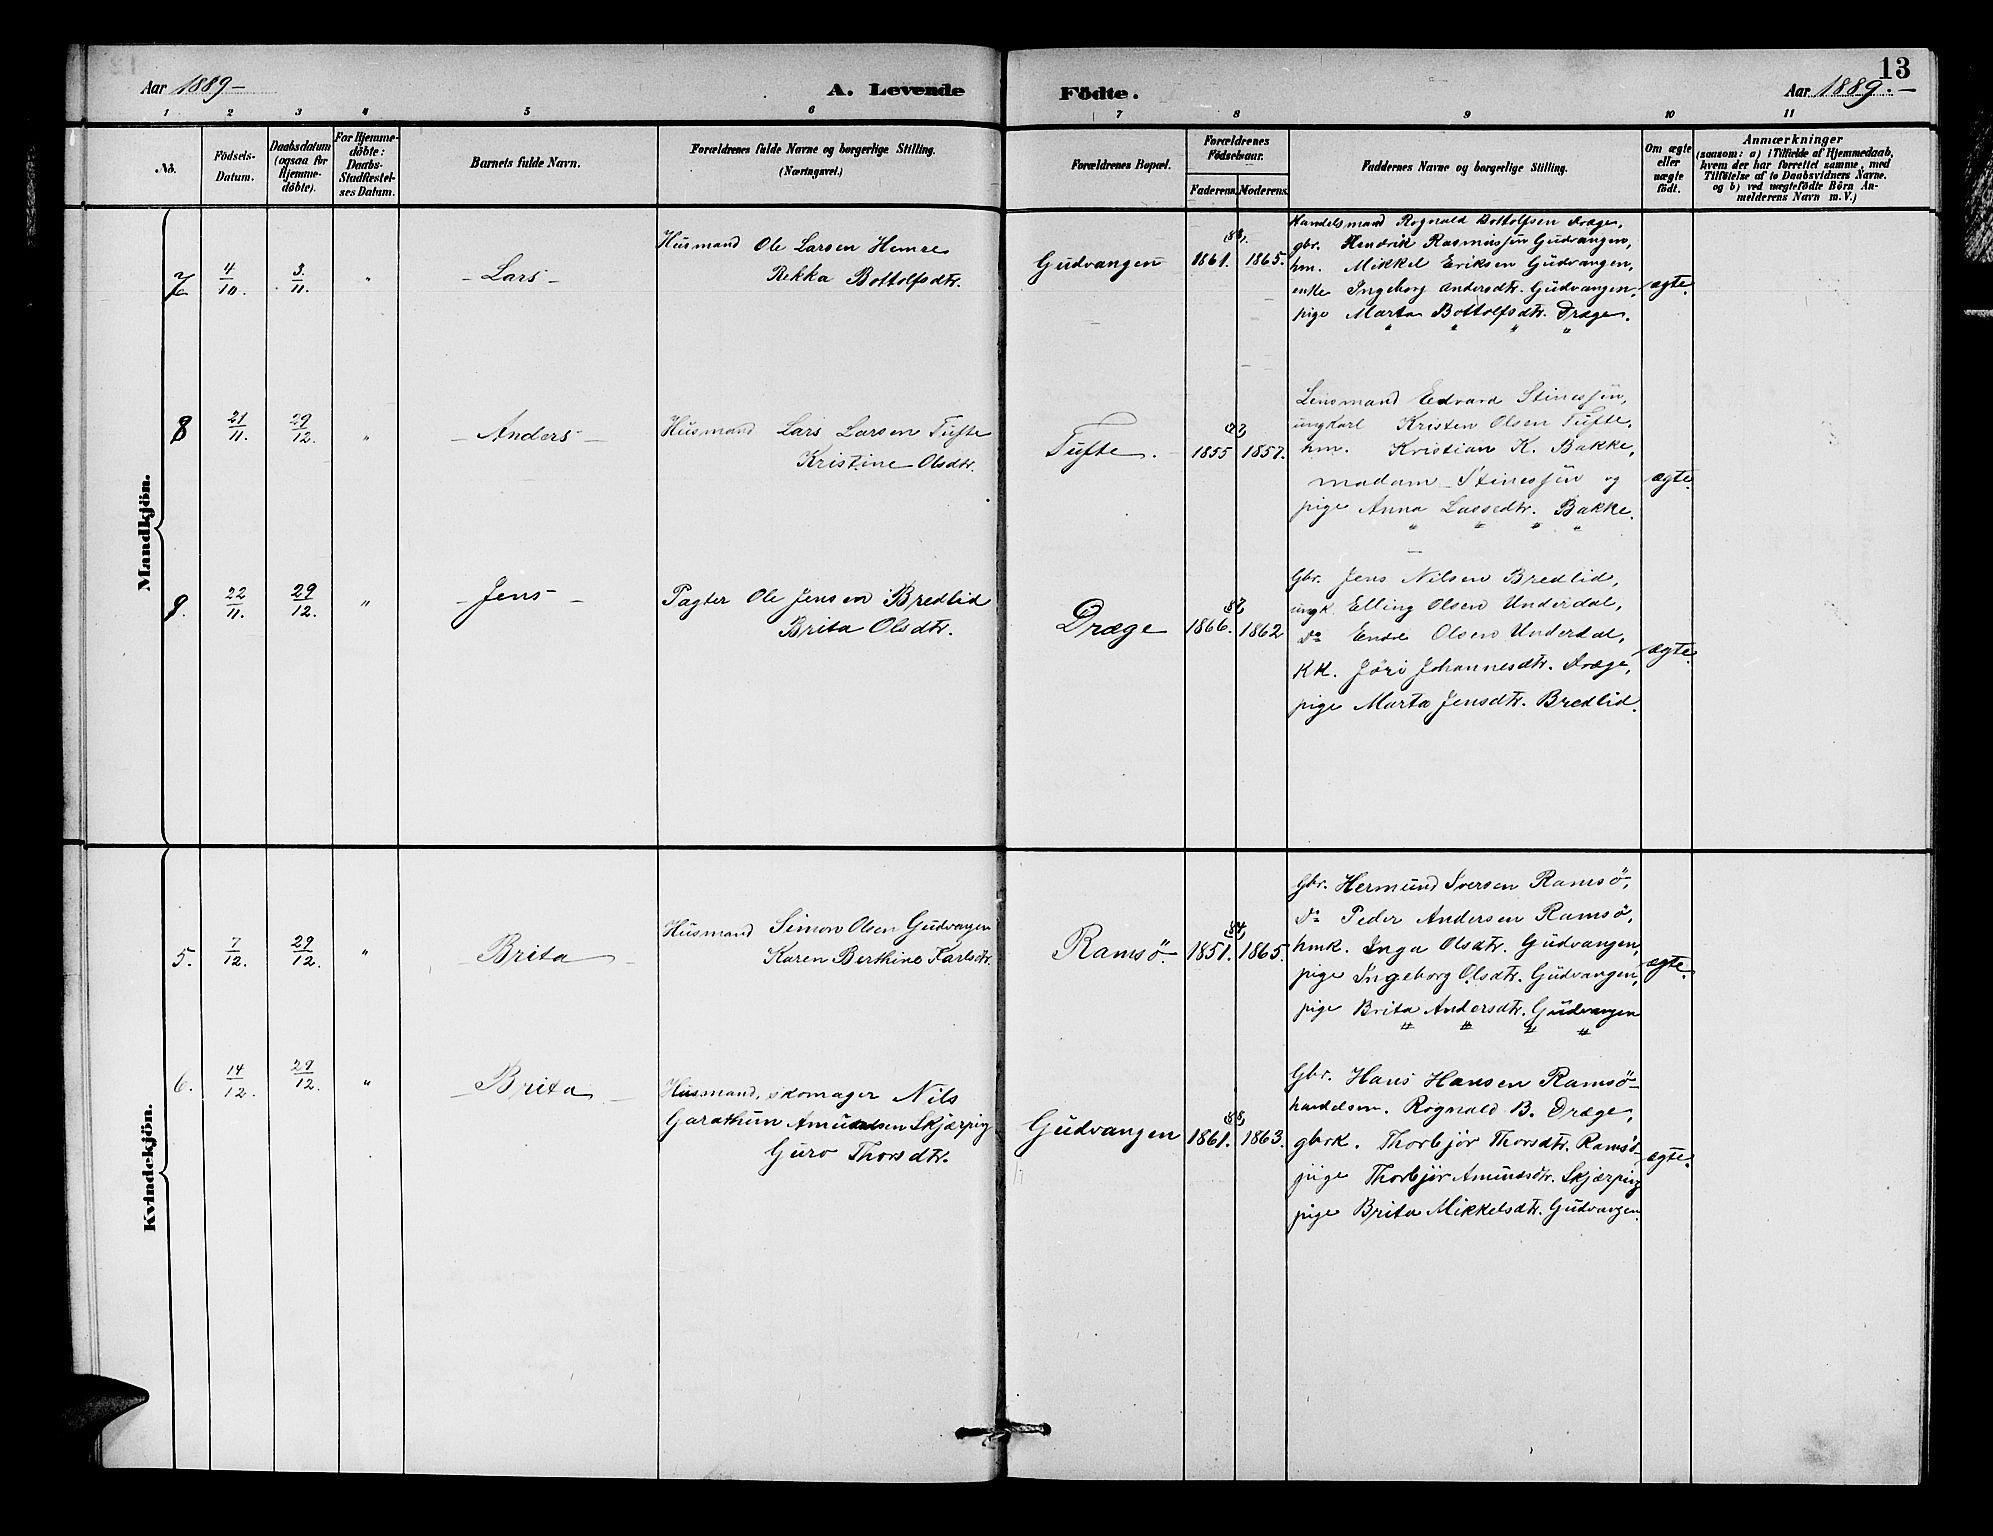 13
Aar 1889-
A. Levende Födte.
Aar 1889.-
1 2 3 4 5 6 7 8 9 10 11
No.
Födsels-
Datum.
Daabsdatum
(ogsaa for
Hjemme-
döbte).
For Hjemme-
döbte:
Daabs-
Stadfæstel-
ses Datum.
Barnets fulde Navn.
Forældrenes fulde Navne og borgerlige Stilling.
(Næringsvei.)
Forældrenes Bopæl.
Forældrenes
Födselsaar.
Faderens. Moderens.
Faddernes Navne og borgerlige Stilling.
Om ægte
eller
uægte
födt.
Anmærkninger
(saasom: a) i Tilfælde af Hjemmedaab,
hvem der har forrettet samme, med
Tilföielse af to Daabsvidners Navne.
og b) ved uægtefödte Börn An-
melderens Navn m. V.)
Mandkjön.
7 4/10 3/11. " - Lars -
Husmand Ole Larsen Hemre
Rekka Bottolfsdtr.
Gudvangen 1861. 88, 1865.
Handelsmand Rognald Bottolfsen Dræge,
gbr. Hendrik Rasmussen Gudvangen,
hm. Mikkel Eriksen Gudvangen,
enke Ingeborg Andersdtr. Gudvangen,
pige Marta Bottolfsdtr. Dræge.
ægte.
8 21/11. 29/12. " - Anders -
Husmand Lars Larsen Tufte
Kristine Olsdtr.
Tufte. 1855 1857.
Lensmand Edvard Stinessen,
ungkarl Kristen Olsen Tufte,
hm. Kristian K. Bakke,
madam Stinessen og
pige Anna Lassedtr. Bakke.
ægte.
9. 22/11. 29/12. " - Jens -
Pagter Ole Jensen Bredlid
Brita Olsdtr.
Dræge 1866. 87, 1862
Gbr. Jens Nilsen Bredlid,
ungk. Elling Olsen Underdal,
Do Endre Olsen Underdal,
KK. Jöri Johannesdtr. Dræge,
pige Marta Jensdtr. Bredlid.
ægte.
Kvindekjön.
5. 7/12. 29/12. " Brita -
Husmand Simon Olsen Gudvangen
Karen Berthine Karlsdtr.
Ramsö - 1851. 84, 1865.
Gbr. Hermund Iversen Ramsö,
Do Peder Andersen Ramsö,
hmk. Inga Olsdtr. Gudvangen,
pige Ingeborg Olsdtr. Gudvangen,
pige Brita Andersdtr. Gudvangen
ægte.
6. 14/12. 29/12. " - Brita -
Husmand, skomager Nils
Garathun Amundsen Skjærping
Guro Thorsdtr.
Gudvangen 1861. 88, 1863.
Gbr. Hans Hansen Ramsö -
handelsm. Rognald B. Dræge,
gbrk. Thorbjör Thorsdtr. Ramsö -
pige Thorbjör Amundsdtr. Skjærping
pige Brita Mikkelsdtr. Gudvangen.
ægte.